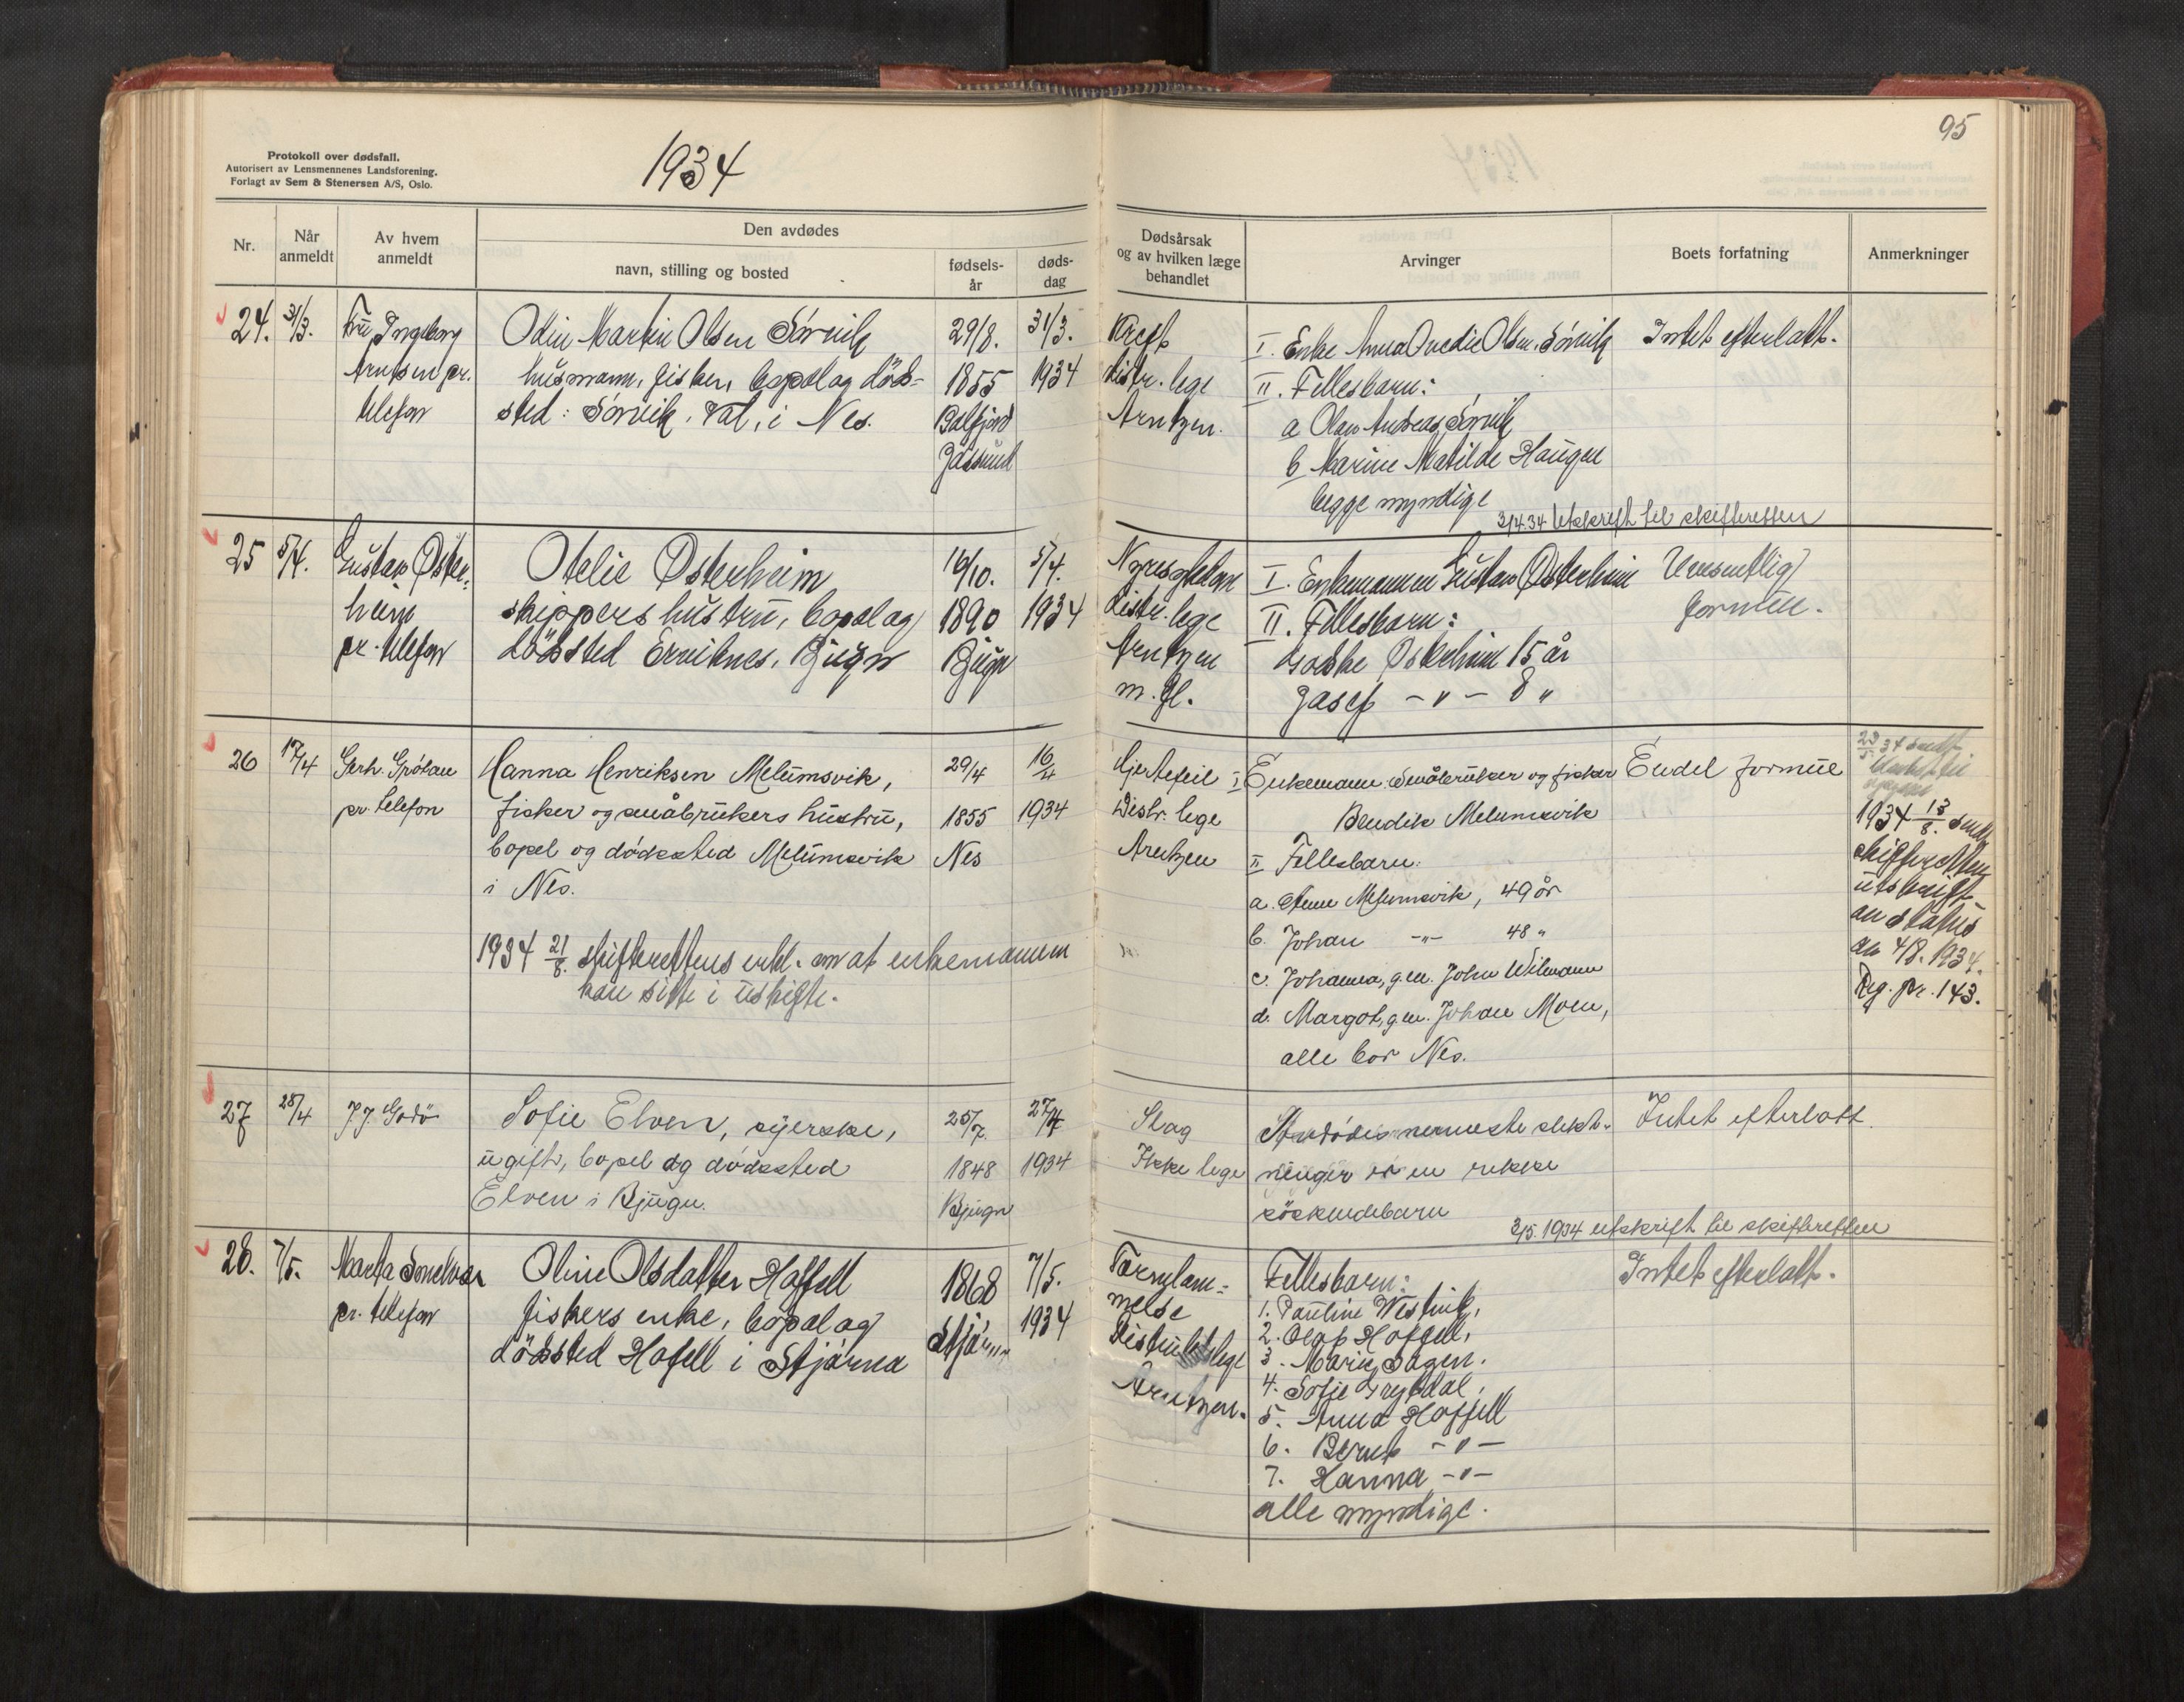 95
Protokoll over dødsfall.
Autorisert av Lensmennenes Landsforening.
Forlagt av Sem & Stenersen A/S, Oslo.
1934
Nr.
Når anmeldt
Av hvem anmeldt
Den avdødes
navn, stilling og bosted
fødsels-år
døds-dag
Dødsårsak og av hvilken læge behandlet
Arvinger
Boets forfatning
Anmerkninger
24. 31/3. Fru Ingeborg Odin Martin Olsen Sörvik 29/8. 31/3. Kreft I. Enke Anna Ovedie Olsen Sörvik Intet efterlatt.
Arntsen pr. husmann, fisker, bopel og döds- 1855 1934 distr. lege II. Fellesbarn:
telefon sted: Sörvik, Val, i Nes. Arntzen. a Olav Andreas Sörvik
b Marine Matilde Haugen
begge myndige
3/4.34 Utskrift til skifteretten
25 5/4. Gustav Öster- Otelie Österheim 16/10. 5/4. I. Enkemannen Gustav Österheim Uvesentlig
heim skippers hustru, bopel og 1890 1934 distr. lege II. Fellesbarn: formue.
pr. telefon dödssted Erviknes, Bjugn Bjugn Arntzen Österheim 15 år
m. fl. Josef -"- 8 "
26 17/4 Gerh. Grötan Hanna Henriksen Melumsvik, 29/4 16/4 Hjertefeil I Enkemann småbruker og fisker Endel formue
pr. telefon fisker og småbrukers hustru, 1855 1934 Distr. lege Bendik Melumsvik
bopel og dödssted Melumsvik Nes Arntzen II Fellesbarn:
i Nes.
a. Anne Melumsvik, 49 år
b. Johan -"- 48 "
c. Johanna, g.m. John Wilmann
d. Margot, g.m. Johan Moen,
alle bor Nes.
1934 21/8. skifterettens erkl. om at enkemannen
kan sitte i uskifte.
1934 13/8. sendt
skifteretten
utskrift
av status
av 4/8. 1934.
Reg. pr. 143.
27 28/4 J.J. Godö Sofie Elven, syerske, 25/7. 27/4 Slag Avdödes nermeste slekt- Intet efterlatt.
ugift, bopel og dödssted 1848 1934 Ikke lege ninger er en rekke
Elven i Bjugn. Bjugn söskendebarn
3/5.1934 utskrift til skifteretten
28. 7/5. Marta Oline Olsdatter Hoffell 1868 7/5. Fellesbarn: Intet efterlatt.
pr. telefon fiskers enke, bopel og 1934 1. Pauline
dödssted Hofell i Stjörna Distriktslege 2. Olaf Hoffell,
Arntzen. 3. Marie Hagen.
4. Sofie
5. Anna Hoffell
6. Bernt -"-
7. Hanna -"-
alle myndige.